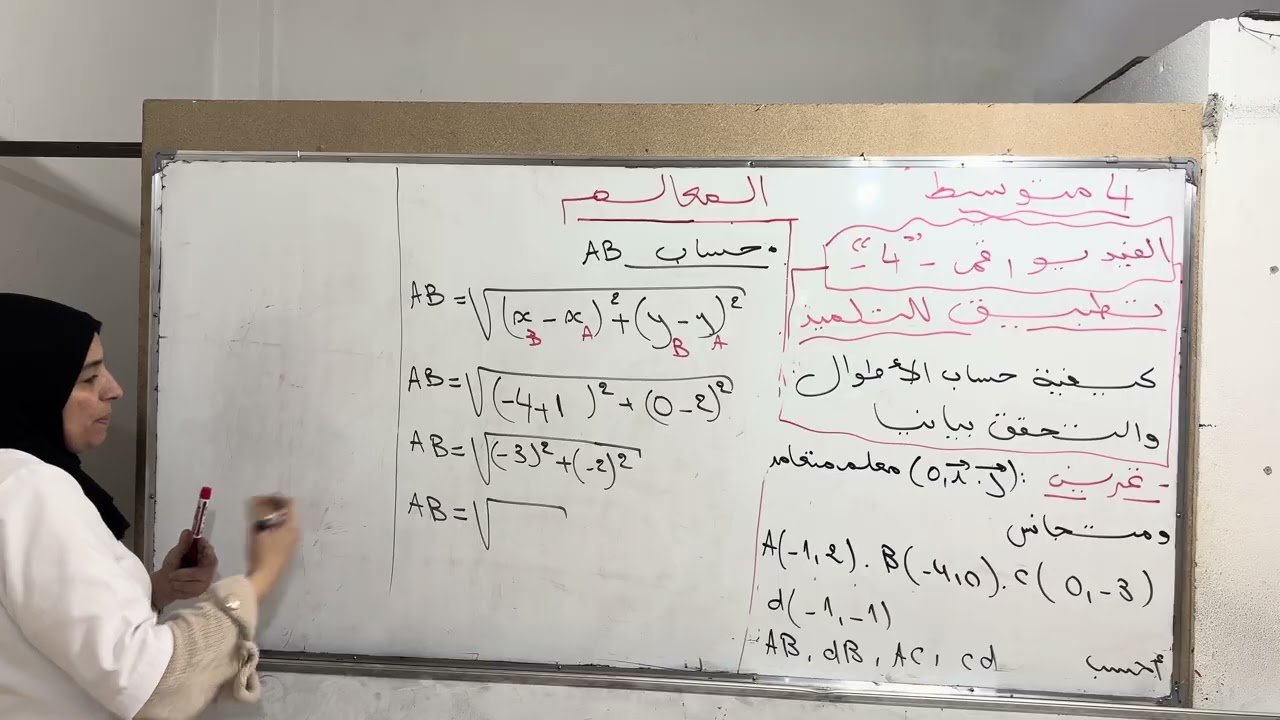 4 متوسط
الفيديو رقم - "4" -
تطبيق للتلميذ
كيفية حساب الأطوال
والتحقق بيانيا
- تمرين: (0, i, j) معلم متعامد
ومتجانس
A(-1,2). B(-4,0). C(0,-3)
d(-1,-1)
أحسب AB, dB, AC, cd
المعالم
• حساب AB
AB = √(x_B - x_A)² + (y_B - y_A)²
AB = √(-4+1)² + (0-2)²
AB = √(-3)² + (-2)²
AB = √